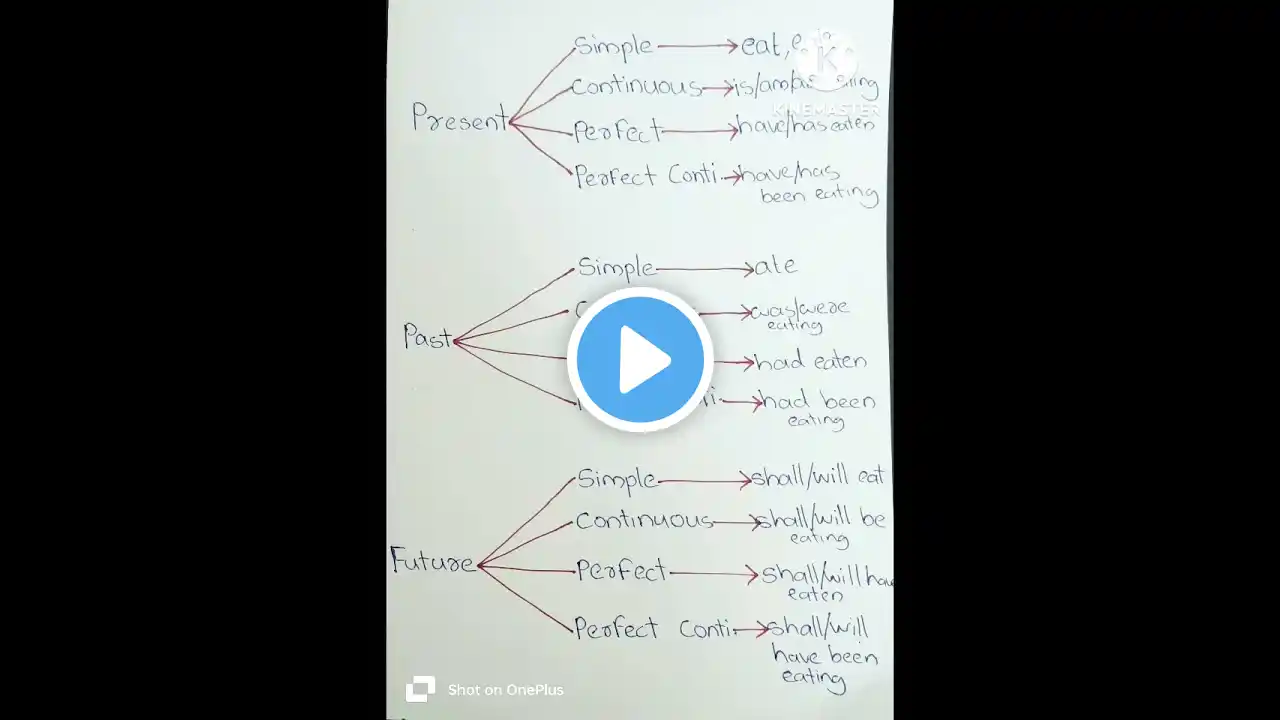 Simple eat,
Continuous is/am/
KINEMASTER
Present
Perfect have/has eaten
Perfect Conti. have/has
been eating
Simple ate
was/were
eating
Past
had eaten
had been
eating
Simple shall/will eat
Continuous shall/will be
eating
Future
Perfect shall/will have
eaten
Perfect Conti. shall/will
have been
eating
Shot on OnePlus